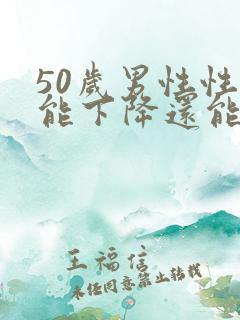 50歲男性性
能下降還能
王福信
未经同意禁止转载